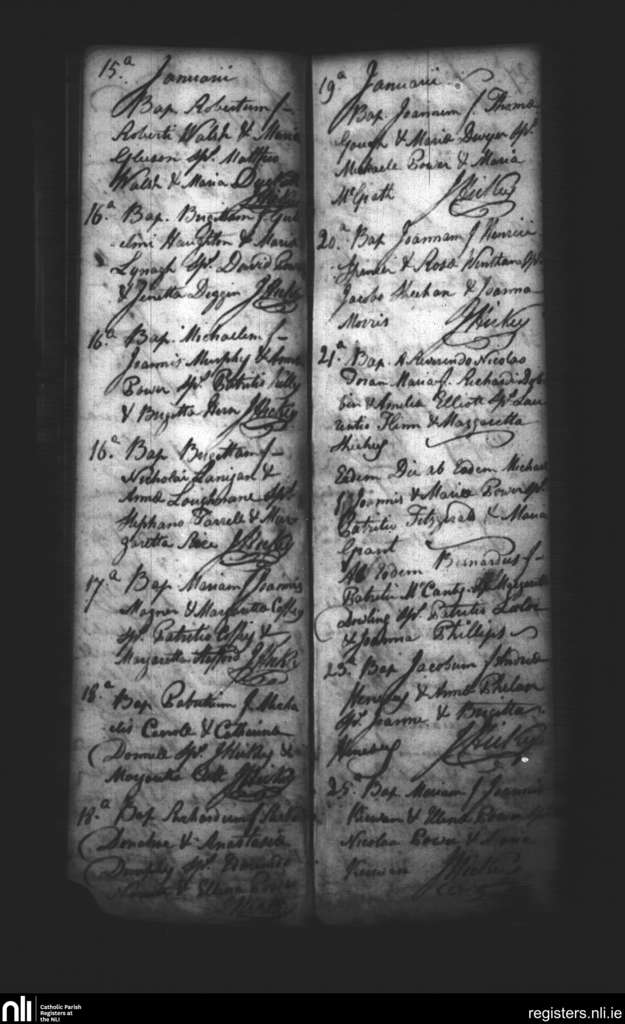 15.a Januarii
Bap. Robertum f–
Roberti Walsh & Maria
Gleeson Spr. Mattheo
Walsh & Maria
JHickey
16.a Bap. Brigittam f. Guli
elmi Haughton & Maria
Lynagh Spr. David Power
& Jenetta Deggin JHickey
16.a Bap. Michaelem f–
Joannis Murphy &
Power Spr. Patritio Kelly
& Brigetta Hern JHickey
16.a Bap Brigettam f–
Nicholai Lanigan &
Anna Loughnane Spr.
Stephano Farrell & Mar
garetta Rice JHickey
17.a Bap Mariam f Joannis
Magner & Margaretta Coffey
Spr. Patritio Coffey &
Margaretta JHickey
18.a Bap Patritium f. Micha
elis Carrole & Catherina
Donnell Spr. JHickey &
Margaretta JHickey
18.a Bap Richardum f
Donahue & Anastasia
Dumphy Spr.
& Ellena Power
JHickey
19.a Januarii
Bap. Joannem f Thoma
Gough & Maria Dwyer Spr.
Michaele Power & Maria
McGrath JHickey
20.a Bap Joannam f Henrici
Spencer & Rosa Spr.
Jacobo Sheehan & Joanna
Morris JHickey
21.a Bap. A Reverendo Nicolao
Doran Maria f. Richardi Dob
bin & Amelia Elliott Spr. Lau
rentio Flinn & Margaretta
Hickey
Eodem Die ab Eodem Michael
f Joannis & Maria Power Spr.
Patritio Fitzgerald & Maria
Grant
Ab Eodem Bernardus f–
Patritii McCanty & Margaretta
Dowling Spr. Patritio Lalor
& Joanna Phillips
23.a Bap Jacobum f Andrea
Henesey & Anna Phelan
Spr. Joanne & Brigetta
Henebery JHickey
25.a Bap Mariam f Joannis
Kirwan & Ellena Power Spr.
Nicolao Power & Anna
Kirwan JHickey
nli
Catholic Parish
Registers at
the NLI
registers.nli.ie